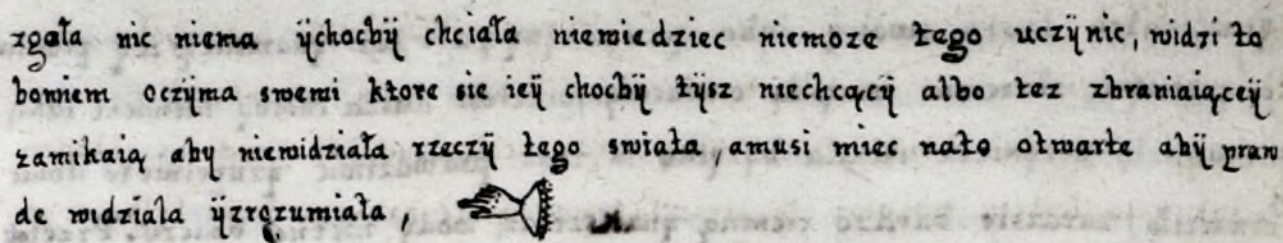 zgoła nic niema ÿchocbÿ chciała niewiedziec niemoze tego uczÿnic, widzi to
bowiem oczÿma swemi ktore sie ieÿ chocbÿ tÿsz niechcącÿ albo tez zbraniaiąceÿ
zamikaią aby niewidziała rzeczÿ tego swiata, amusi miec nato otwarte abÿ praw
de widziala ÿzrozumiała,